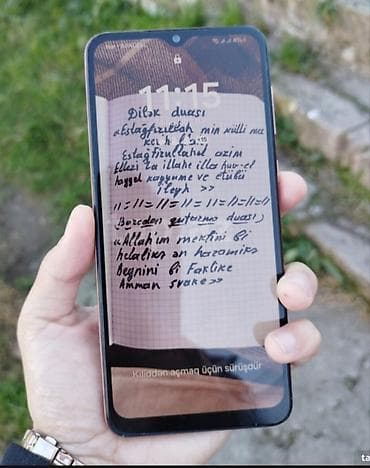 11:15
Dilək duası
«Estağfirullah min külli ma
Estağfirullahul azim
Ellezi la illahe illa huv-el
hayyul kayyume ve etubu
ileyh >>
11=11=11=11=11=11=11=11
(Borcdan qutarma duası)
«Allahım mekfini bi
helalike an haramike
Beynini bi Fazlike
Amman svake>>
Kiliddən açmaq üçün sürüşdür
ta